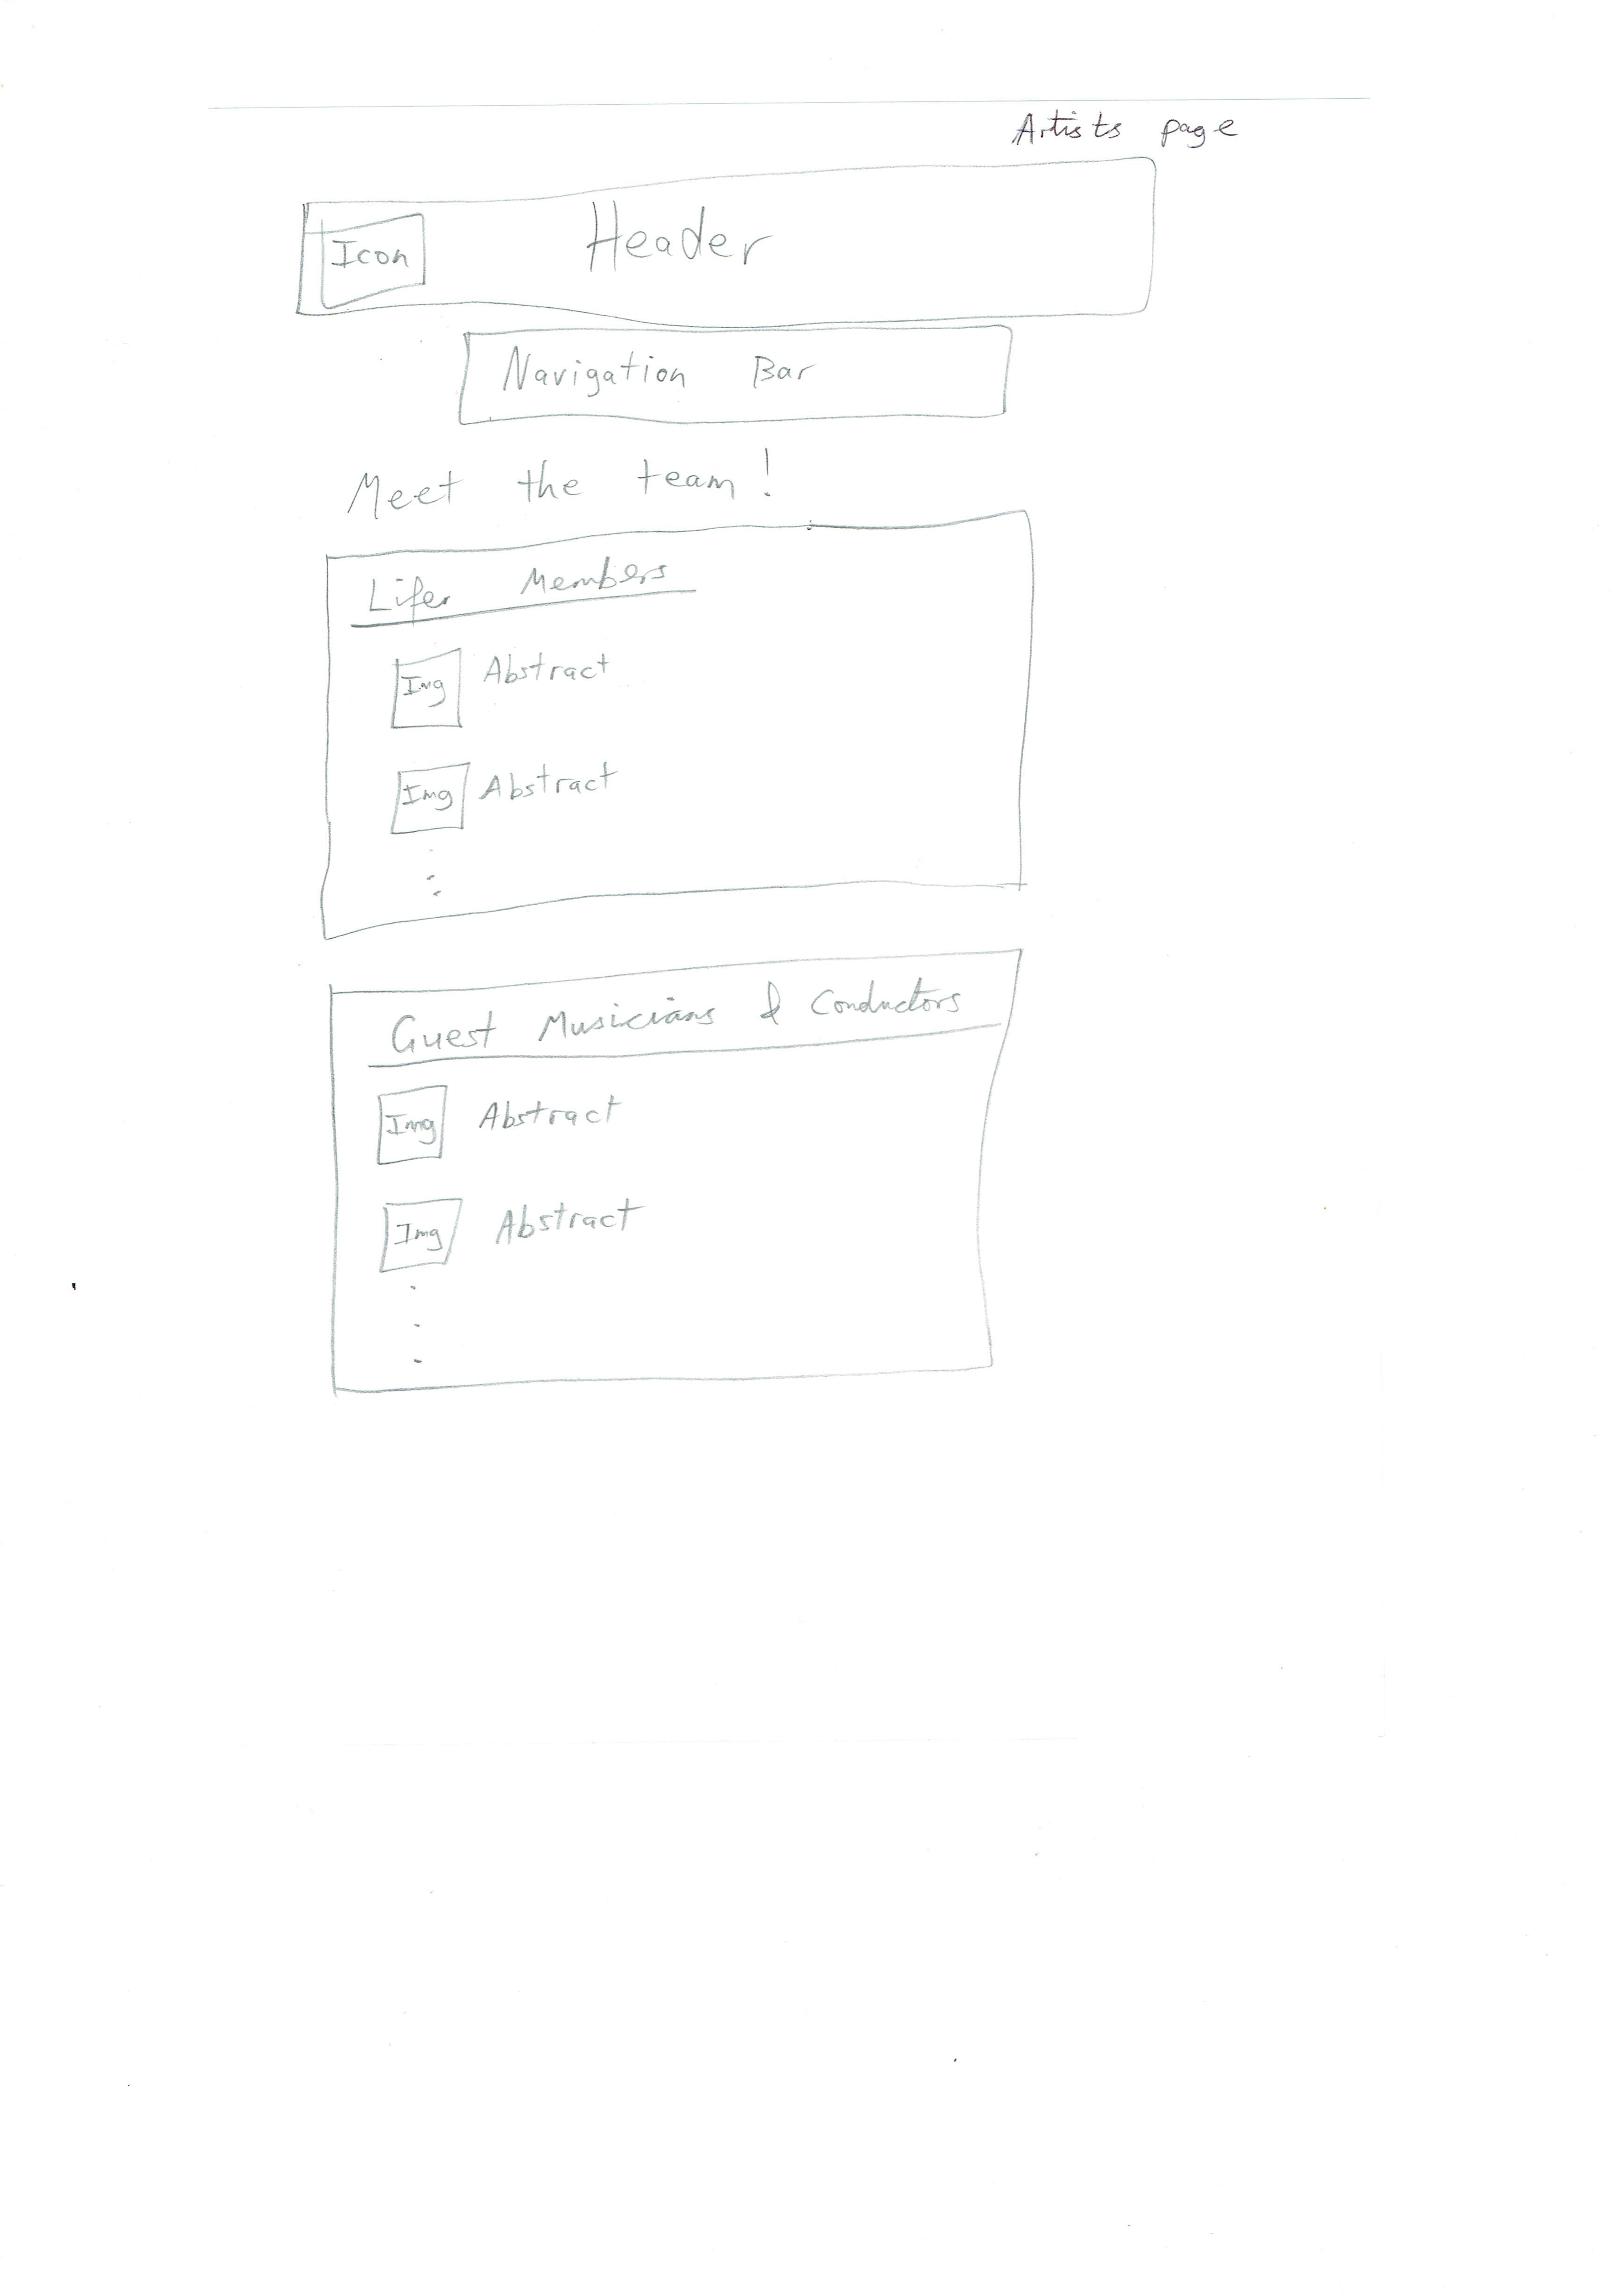 Artists page
Icon
Header
Navigation Bar
Meet the team!
Lifer Members
Img Abstract
Img Abstract
Guest Musicians & Conductors
Img Abstract
Img Abstract